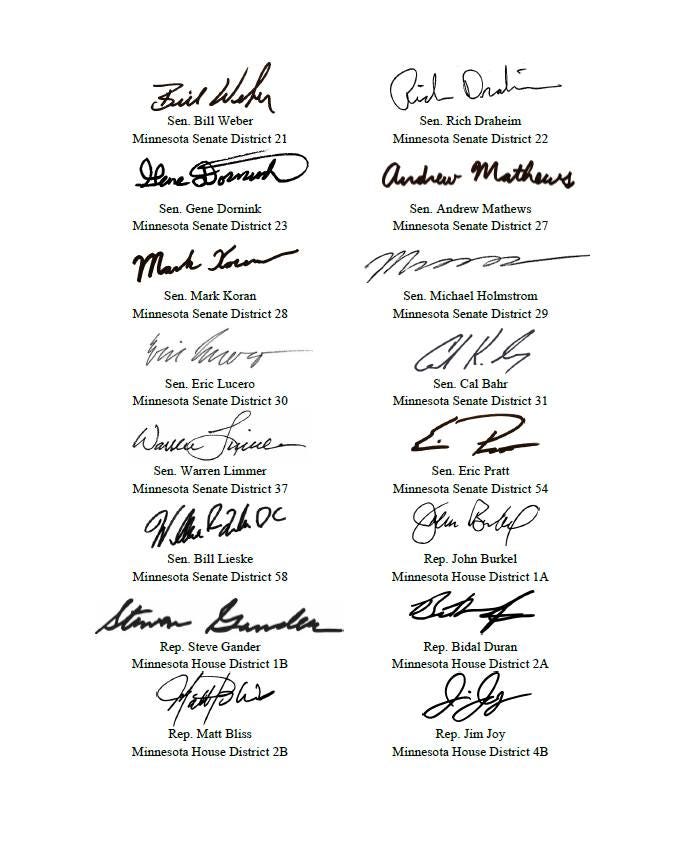 Bill Weber Rich Draheim
Sen. Bill Weber Sen. Rich Draheim
Minnesota Senate District 21 Minnesota Senate District 22
Gene Dornink Andrew Mathews
Sen. Gene Dornink Sen. Andrew Mathews
Minnesota Senate District 23 Minnesota Senate District 27
Mark Koran
Sen. Mark Koran Sen. Michael Holmstrom
Minnesota Senate District 28 Minnesota Senate District 29
Eric Lucero
Sen. Eric Lucero Sen. Cal Bahr
Minnesota Senate District 30 Minnesota Senate District 31
Warren Limmer
Sen. Warren Limmer Sen. Eric Pratt
Minnesota Senate District 37 Minnesota Senate District 54
DC John Burkel
Sen. Bill Lieske Rep. John Burkel
Minnesota Senate District 58 Minnesota House District 1A
Steven Gander
Rep. Steve Gander Rep. Bidal Duran
Minnesota House District 1B Minnesota House District 2A
Matt Bliss Jim Joy
Rep. Matt Bliss Rep. Jim Joy
Minnesota House District 2B Minnesota House District 4B